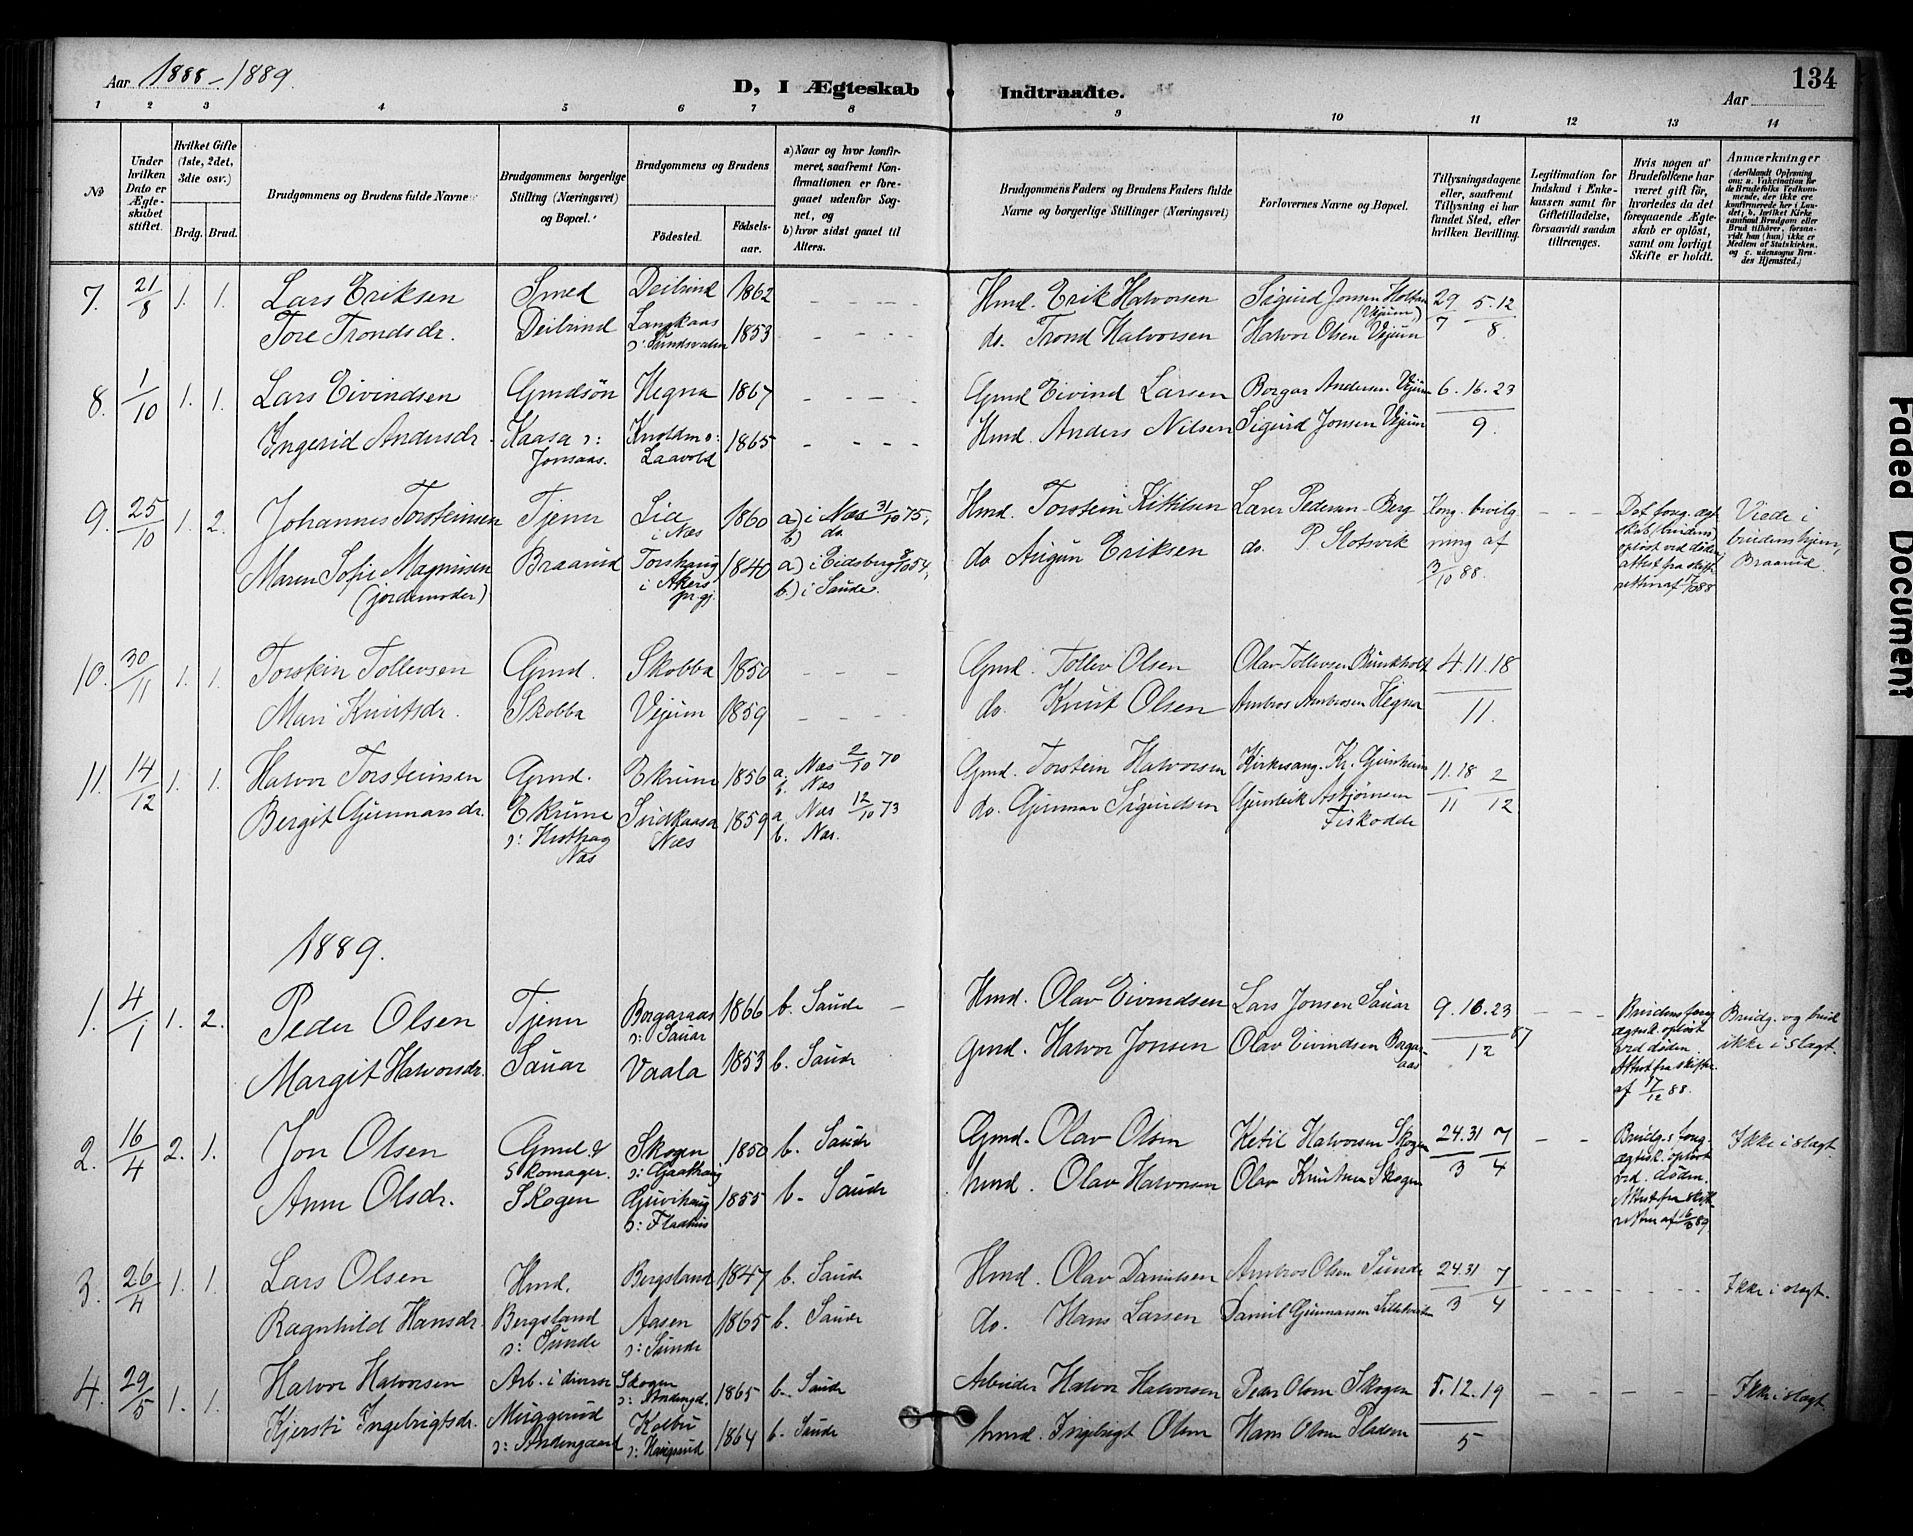 Aar 1888-1889.
D, I Ægteskab Indtraadte.
Aar 134
1 2 3 4 5 6 7 8 9 10 11 12 13 14
No
Under hvilken Dato er Ægteskabet stiftet.
Hvilket Gifte (1ste, 2det, 3die osv.)
Brdg. Brud.
Brudgommens og Brudens fulde Navne
Brudgommens borgerlige Stilling (Næringsvei) og Bopæl.
Brudgommens og Brudens
Fødested. Fødselsaar.
a) Naar og hvor konfirmeret, saafremt Konfirmationen er foregaaet udenfor Sognet, og
b) hvor sidst gaaet til Alters.
Brudgommens Faders og Brudens Faders fulde Navne og borgerlige Stillinger (Næringsvei)
Forlovernes Navne og Bopæl.
Tillysningsdagene eller, saafremt Tillysning ei har fundet Sted, efter hvilken Bevilling.
Legitimation for Indskud i Enkekassen samt for Giftetilladelse, forsaavidt saadan tiltrænges.
Hvis nogen af Brudefolkene har været gift før, hvorledes da det foregaaende Ægteskab er opløst, samt om lovligt Skifte er holdt.
Anmærkninger
(deriblandt Oplysning om: a. Vakcination for de Brudefolks Vedkommende, der ikke ere konfirmerede her i Landet; b. hvilket Kirkesamfund Brudgom eller Brud tilhører, forsaavidt han (hun) ikke er Medlem af Statskirken, og c. udensogns Brudes Hjemsted.)
7. 21/8 1. 1. Lars Eriksen Smed Deilrind 1862 - - - - Hmd. Erik Halvorsen Sigurd Jonsen Holtan (Vejum) 29/7 5.12/8
Tore Trondsdr. Deilrind Langkaas ɔ: Sundsvalen 1853 - - - - do. Trond Halvorsen Halvor Olsen Vejum
8. 1/10 1. 1. Lars Eivindsen Gmdsøn Hegna 1867 - - - - Gmd Eivind Larsen Borgar Andersen Vejum 6.16.23/9.
Ingerid Andersdr. Kaasa ɔ: Jonsaas. Knolden ɔ: Laavold 1865 - - - - Hmd. Anders Nilsen Sigurd Jonsen Vejum
9. 25/10 1. 2. Johannes Torsteinsen Tjener Lia i Næs 1860 a) i Næs 31/10 75, b) do. Hmd. Torstein Kittilsen Lærer Pedersen Berg Kong. bevilgning af 3/10 88. - - - Det foreg. ægteskab (brudens) opløst ved døden, attest fra skifteretten af 17/10 88 Viede i brudens hjem, Braarud.
Maren Sofie Magnusen (jordemoder) Braarud Torshaug i Akers pr.gj. 1840 a) i Eidsberg 8/10 54, b.) i Saude. do Augun Eriksen do. P. Slotsvik
10. 30/11 1. 1. Torstein Tollevsen Gmd. Skobba 1850 - - - Gmd. Tollev Olsen Olav Tollevsen Bunkholt 4.11.18/11.
Mari Knutsdr. Skobba Vejum 1859 - - - - do. Knut Olsen Ambros Ambrosen Hegna
11. 14/12 1. 1. Halvor Torsteinsen Gmd. Ekrune 1856 a. Næs 2/10 70 b. Næs Gmd. Torstein Halvorsen Kirkesang. Kr. Gjenheim 11.18/11 2/12
Bergit Gunnarsdr. Ekrune ɔ: Hesthag Næs Surkaasa Næs 1859 a Næs 12/10 73 b. Næs. do. Gunnar Sigurdsen Gunleik Asbjørnsen Fiskodde
1889.
1. 4/1 1. 2. Peder Olsen Tjener Borgaraas ɔ: Sauar 1866 b. Saude - Hmd. Olav Eivindsen Lars Jonsen Sauar 9.16.23/12 87 - - - Brudens foreg. ægtesk. opløst ved døden. Attest fra skifter. af 17/12 88. Brudg. og brud ikke i slægt.
Margit Halvorsdr. Sauar Vaala 1853 b. Saude Gmd. Halvor Jonsen Olav Eivindsen Borgaraas
2. 16/4 2. 1. Jon Olsen Gmd. & Skomager. Skogen ɔ: Gaathaug 1850 b. Saude Gmd. Olav Olsen Ketil Halvorsen Skogen 24.31/3 7/4 - - Brudg.s foreg. ægtesk. opløst ved døden. Attest fra skifteretten af 16/3 89 Ikke i slægt
Anne Olsdr. Skogen Gjuvhaug ɔ: Fladhus 1855 b. Saude hmd. Olav Halvorsen Olav Knutsen Skogen
3. 26/4 1. 1. Lars Olsen Hmd. Bergsland 1847 b. Saude Hmd. Olav Danielsen Ambros Olsen Sunde 24.31/3 7/4 - - - - - - Ikke i slægt.
Ragnhild Hansdr. Bergsland ɔ: Sunde Aasen ɔ: Sunde 1865 b. Saude do. Hans Larsen Daniel Gunnarsen
4. 29/5 1. 1. Halvor Halvorsen Arb. i diverse Skogen 1865 b. Saude Arbeider Halvor Halvorsen Peder Olsen Skogen 5.12.19/5 - - - - - - Ikke i slægt
Kjersti Ingebrigtsdr. Muggerud ɔ: Andengaard Kolbu ɔ: Haugerud 1864 b. Saude hmd. Ingebrigt Olsen Hans Olsen Pladsen
Faded Document